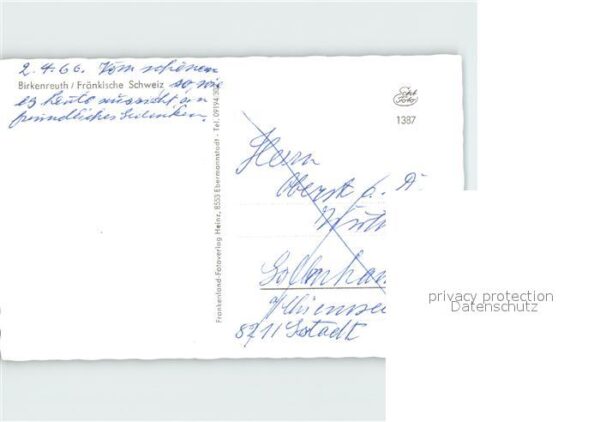 2.4.66. Vom schönen
Birkenreuth / Fränkische Schweiz so wie
es heute aussieht, ein
freundliches Gedenken.
Echt
Foto
1387
Frankenland-Fotoverlag Heinz, 8553 Ebermannstadt - Tel. 09194-30
Herrn
Oberst a. D.
a/Chiemsee
8211 Gstadt
privacy protection
Datenschutz